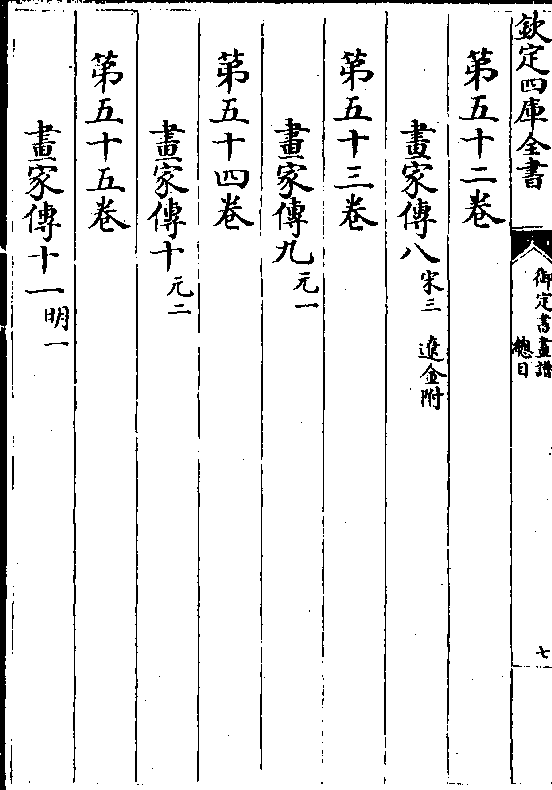 欽定四庫全書
御定書畫譜
總目
七
第五十二卷
畫家傳八 宋三 遼金附
第五十三卷
畫家傳九 元一
第五十四卷
畫家傳十 元二
第五十五卷
畫家傳十一 明一